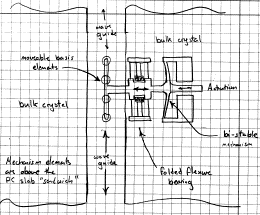 wave
guide
bulk crystal
moveable basis
elements
Actuation
bulk crystal
bi-stable
mechanism
Mechanism elements
are above the
PC slab "sandwich"
wave
guide
folded flexure
bearing